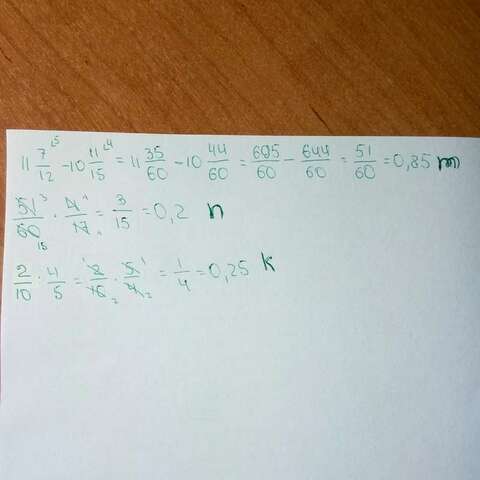 11 7/12 ⁵ - 10 11/15 ⁴ = 11 35/60 - 10 44/60 = 695/60 - 644/60 = 51/60 = 0,85 m
51/60 · 4/17 = 3/15 = 0,2 n
2/10 : 4/5 = 2/10 · 5/4 = 1/4 = 0,25 k